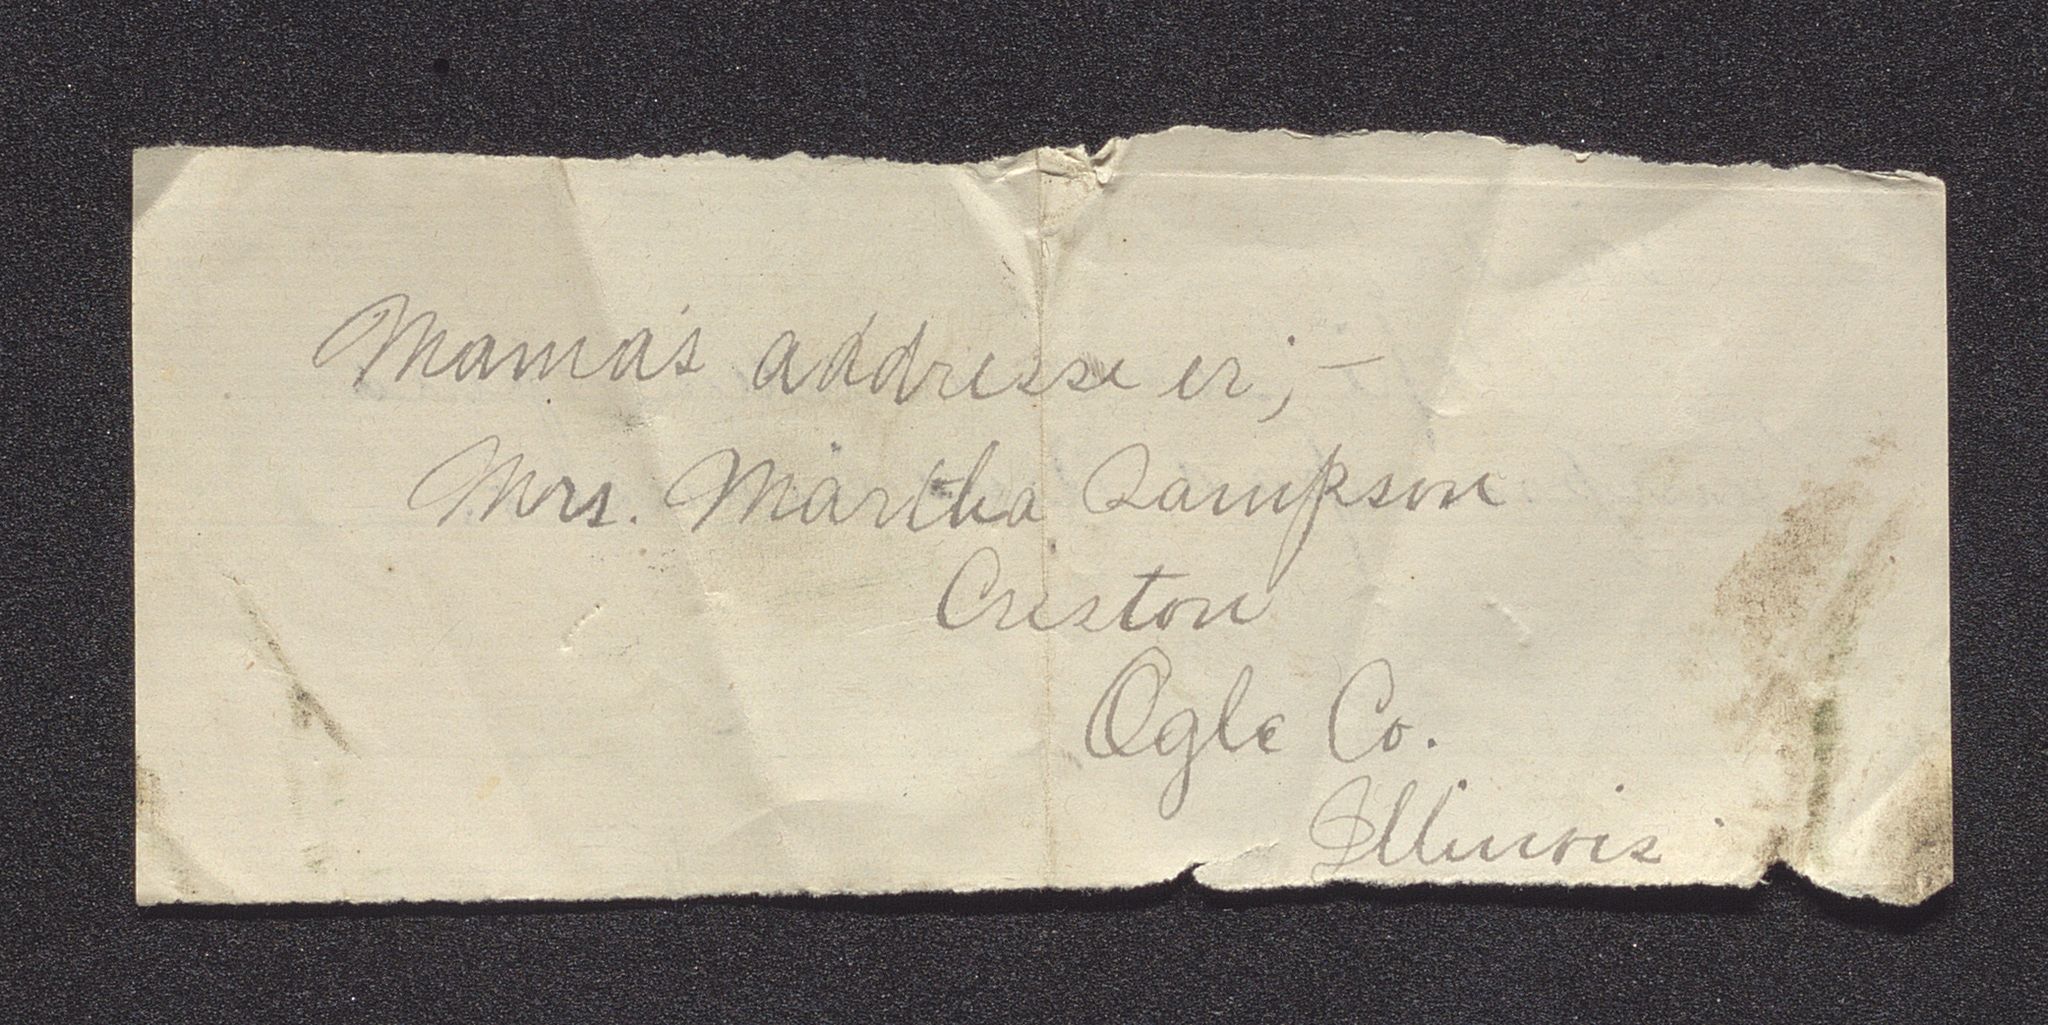 Mama's addresse er;—
Mrs. Martha Sampson
Creston
Ogle Co.
Illinois